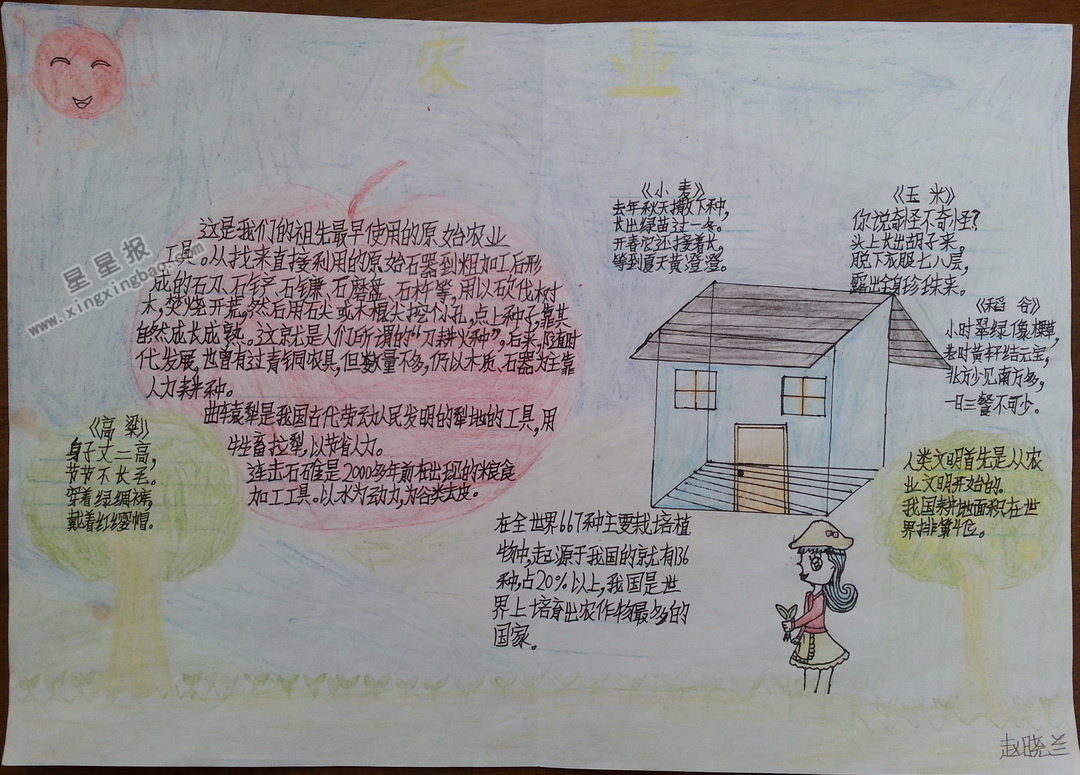 农业
星星报
www.xingxingbao.com
这是我们的祖先最早使用的原始农业
工具。从找来直接利用的原始石器到粗加工后形
成的石刀、石铲、石镰、石磨盘、石杵等,用以砍伐树
木,焚烧开荒,然后用石尖或木棍尖挖个小孔,点上种子,靠其
自然成长成熟。这就是人们所谓的“刀耕火种”,后来,随着时
代发展,也曾有过青铜农具,但数量不多,仍以木质、石器为主靠
人力耕种。
曲辕犁是我国古代劳动人民发明的犁地的工具,用
牛牲畜拉犁,以节省人力。
连击石碓是2000多年前在出现的粮食
加工工具。以水为动力,为谷类去皮。
《高粱》
身子丈二高,
节节不长歪。
穿着绿绸裤,
戴着红缨帽。
《小麦》
去年秋天撒下种,
长出绿苗过一冬。
开春它还接着长,
等到夏天黄澄澄。
《玉米》
你说奇怪不奇怪?
头上长出胡子来。
脱下衣服七八层,
露出全身珍珠来。
《稻谷》
小时翠绿像棵草,
老时黄秆结元宝,
北方少见南方多,
一日三餐不可少。
人类文明首先是从农
业文明开始的。
我国耕地面积在世
界排第4位。
在全世界667种主要栽培植
物中,起源于我国的就有136
种,占20%以上,我国是世
界上培育出农作物最多的
国家。
赵晓兰